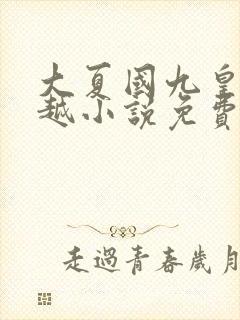 大夏國九皇
越小說免費
走過青春歲月